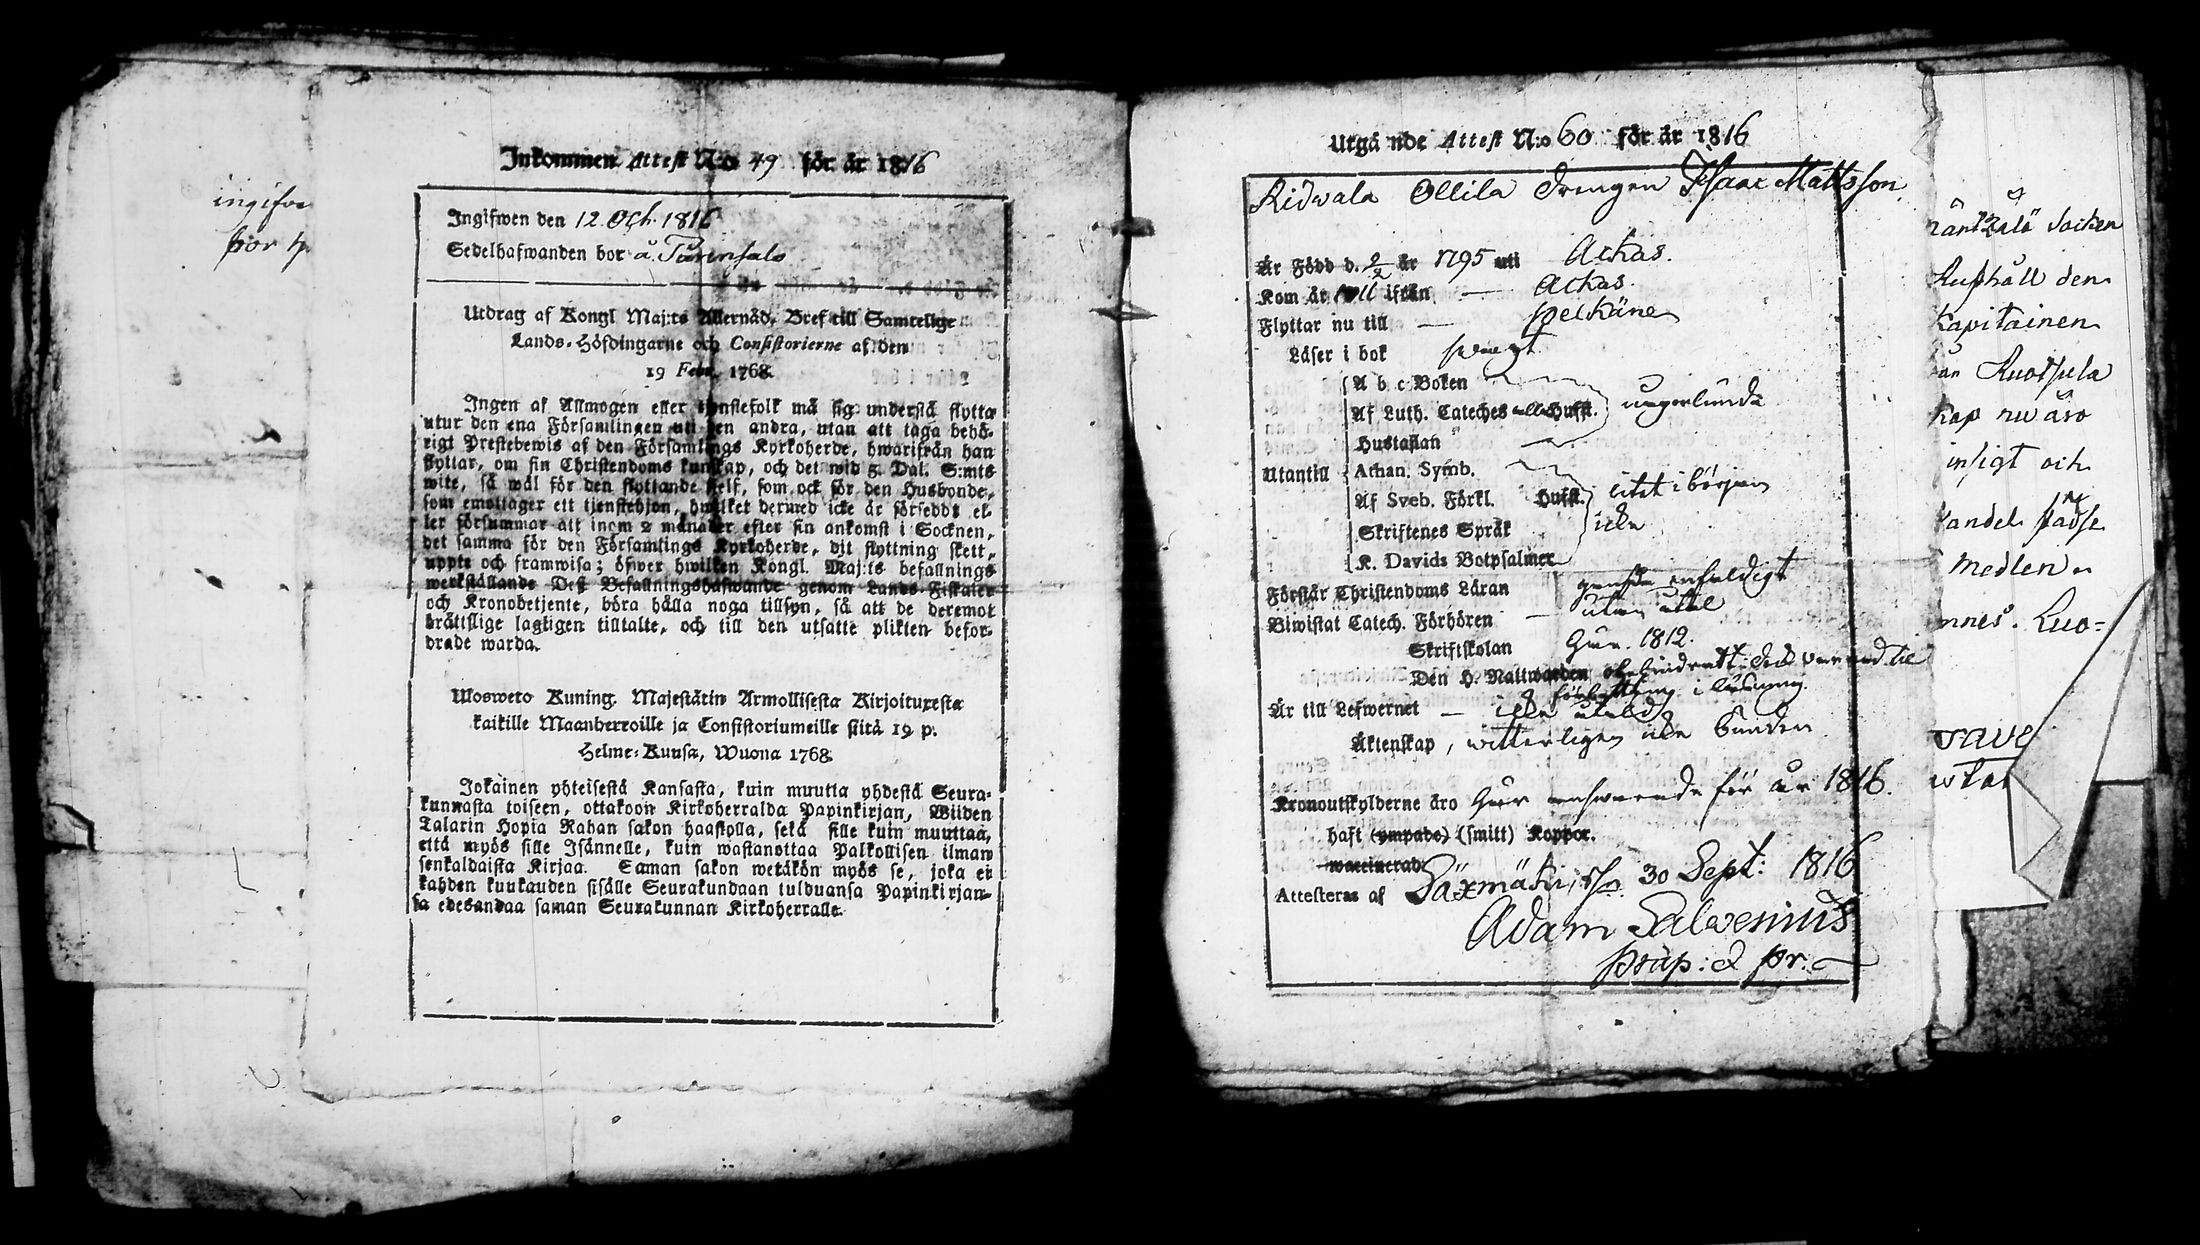 ingifve
bor h
Inkommen Attest N:o 49 för år 1816
Ingifwen den 12 Oct. 1816
Sedelhafwanden bor å
Utdrag af Kongl Maj:ts Allernåd. Bref till Samtelige
Lands-Höfdingarne och Consistorierne af den
19 Febr. 1768.
Ingen af Allmogen eller tjenstefolk må sig understå flytta
utur den ena Församlingen uti den andra, utan att taga behö-
rigt Prestebewis af den Församlings Kyrkoherde, hwarifrån han
flyttar, om sin Christendoms kunskap, och det wid 5 Dal. S:mts
wite, så wäl för den flyttande self, som ock för den Husbonde,
som emottager ett tjenstehjon, hwilket dermed icke är försedd; el-
ler försummar att inom 2 månader efter sin ankomst i Socknen,
det samma för den Församlings Kyrkoherde, dit flyttning skett,
uppte och framwisa; öfwer hwilken Kongl. Maj:ts befallnings
werkställande Deß Befallningshafwande genom Lands-Fiskaler
och Kronobetjente, böra hålla noga tillsyn, så att de deremot
brättslige lagligen tilltalte, och till den utsatte plikten befor-
drade warda.
Ulosweto Kuning. Majestätin Armollisesta Kirjoituxesta
kaikille Maanherroille ja Consistoriumeille siitä 19 p.
Helme-Kuusa, Wuona 1768.
Jokainen yhteisestä Kansasta, kuin muutta yhdestä Seura-
kunnasta toiseen, ottakoon Kirkoherralda Papinkirjan, Wiiden
Talarin Hopia Rahan sakon haastolla, sekä sille kuin muuttaa,
että myös sille Isännelle, kuin wastanottaa Palkollisen ilman
senkaldaista Kirjaa. Saman sakon wetäkön myös se, joka ei
kahden kuukauden sisälle Seurakundaan tulduansa Papinkirjan-
sa edesandaa saman Seurakunnan Kirkoherralle.
Utgå nde Attest N:o 60 för år 1816
Ridwala Ollila Drengen Isaac Mattsson
Är Född d. 2/2 år 1795 uti Ackas.
Kom år ifrån — Ackas.
Flyttar nu till — Pelkäne
Läser i bok swagt
A b c Boken
Af Luth. Cateches Hufst. någorlunda
Hustaflan
Utantill Athan. Symb.
Af Sveb. Förkl. Hufst. litet i början
Skriftenes Språk icke
K. Davids Botpsalmer
Förstår Christendoms Läran ganska enfaldigt
Biwistat Catech. Förhören — utan
Skriftskolan 1812.
Den H. Nattwarden
förbettring i läsning
Är till Lefwernet — icke
Äktenskap, witterligen icke bunden
Kronoutskylderne äro för år 1816.
haft (ympade) (smitt) Koppor.
waccinerad
Attesteras af Säxmäki, d. 30 Sept: 1816
Adam Salvenius
Præp: & Pr.
socken
Rusthåll den
Kapitainen
kap nu äro
insigt och
medlen
Luo=